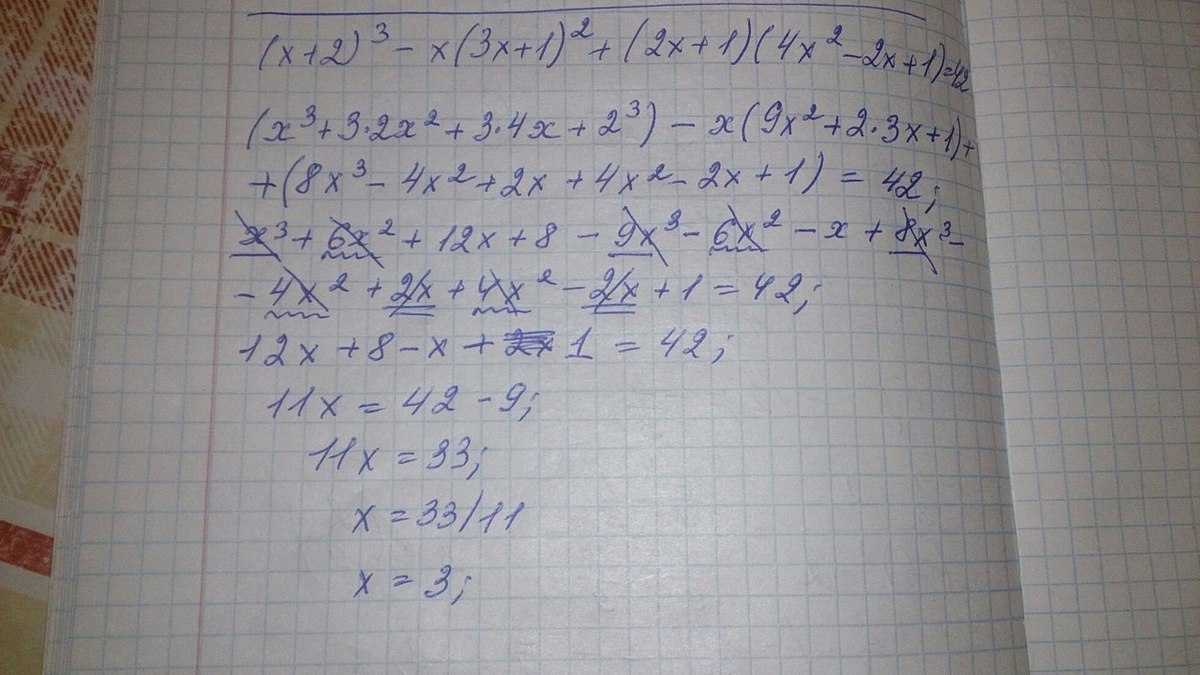 (x+2)³ - x(3x+1)² + (2x+1)(4x² - 2x+1) = 42
(x³ + 3·2x² + 3·4x + 2³) - x(9x² + 2·3x + 1) +
+ (8x³ - 4x² + 2x + 4x² - 2x + 1) = 42;
x³ + 6x² + 12x + 8 - 9x³ - 6x² - x + 8x³ -
- 4x² + 2x + 4x² - 2x + 1 = 42;
12x + 8 - x + 1 = 42;
11x = 42 - 9;
11x = 33;
x = 33/11
x = 3;